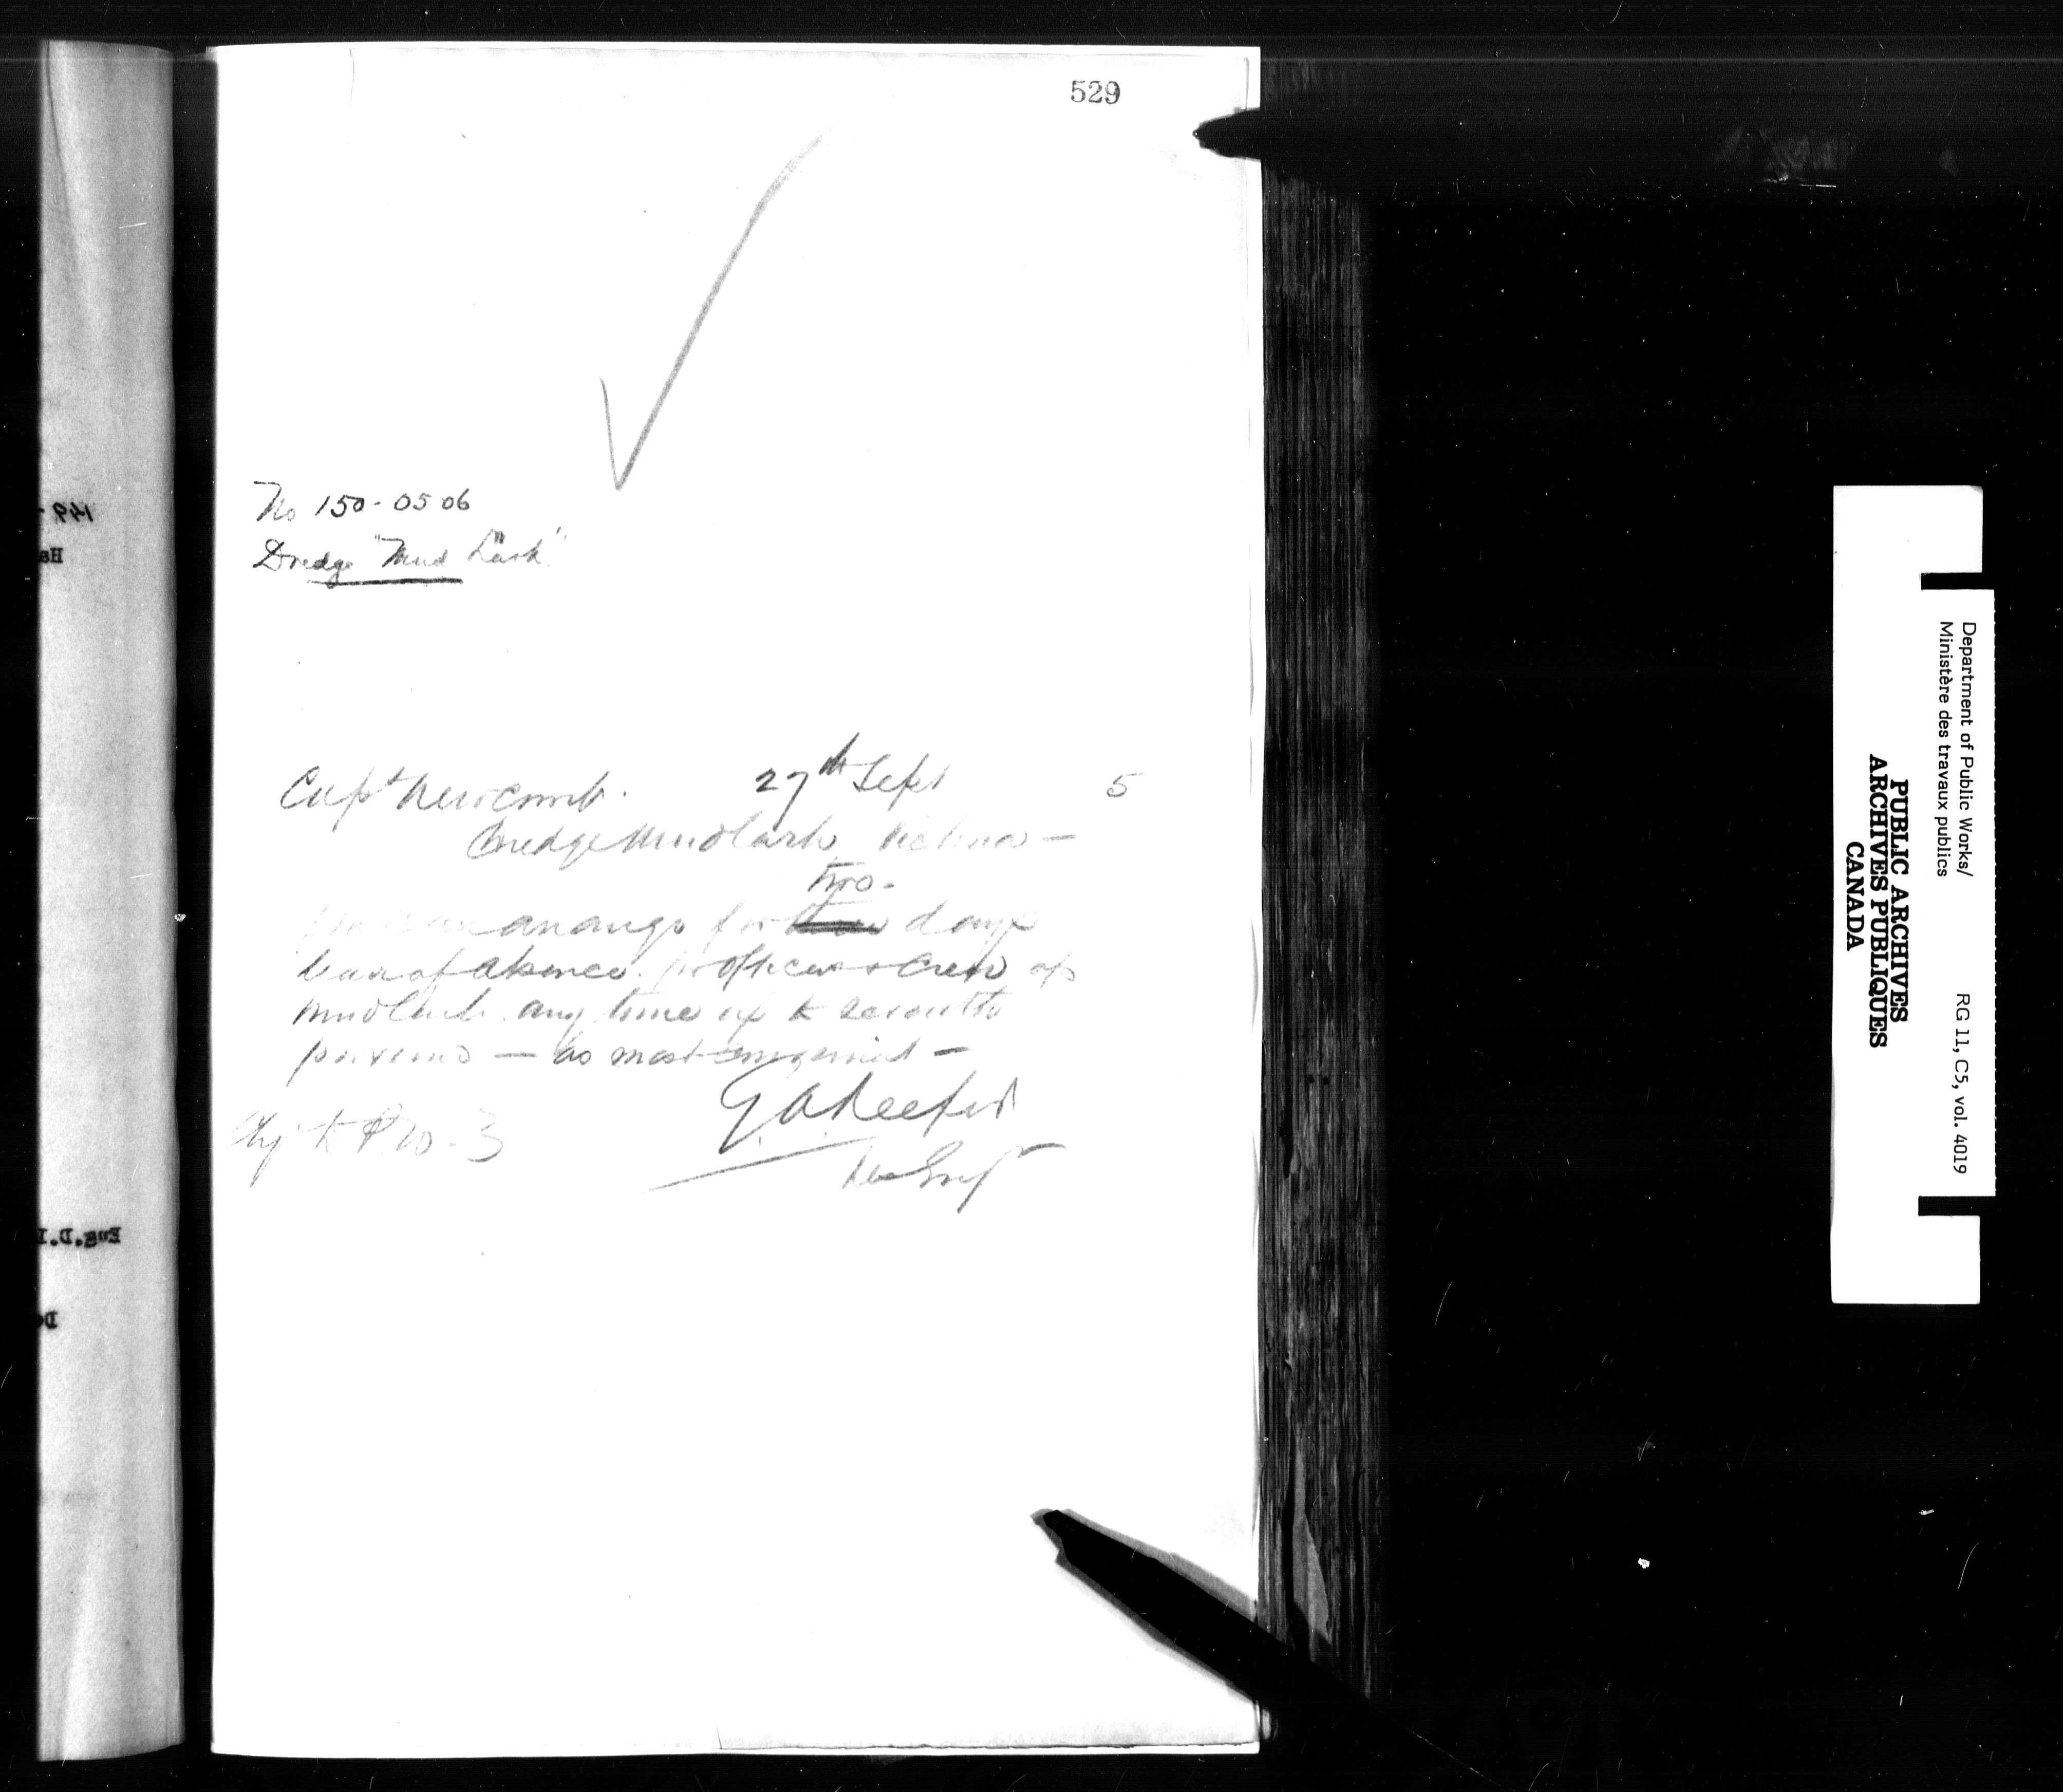 529
No 150-0506
Dredge "Mud Lark"
Capt Newcomb. 27th Sept 5
Dredge Mudlark Victoria —
two.
can arrange for days
leave of absence for officers & crew of
Mudlark any time up to
— as most convenient —
G A Keefer
149
Department of Public Works/
Ministère des travaux publics
RG 11, C5, vol. 4019
PUBLIC ARCHIVES
ARCHIVES PUBLIQUES
CANADA